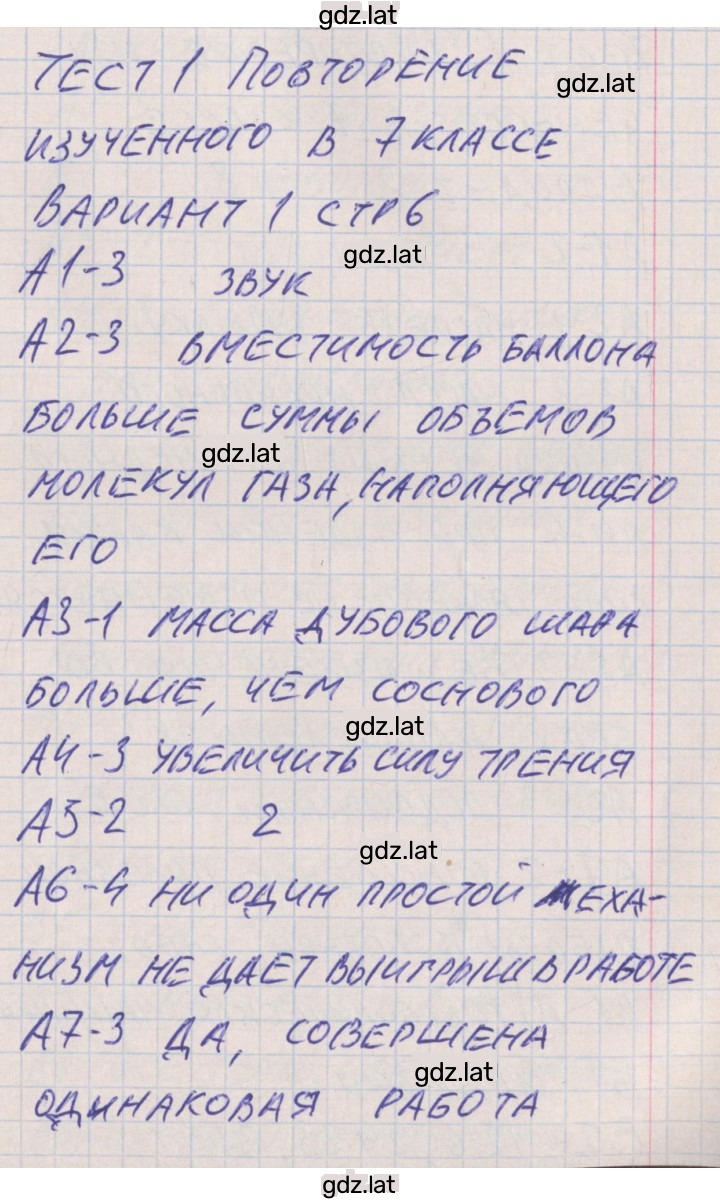 gdz.lat
ТЕСТ 1 ПОВТОРЕНИЕ
gdz.lat
ИЗУЧЕННОГО В 7 КЛАССЕ
ВАРИАНТ 1 СТР 6
gdz.lat
А1-3 ЗВУК
А2-3 ВМЕСТИМОСТЬ БАЛЛОНА
БОЛЬШЕ СУММЫ ОБЪЕМОВ
gdz.lat
МОЛЕКУЛ ГАЗА, НАПОЛНЯЮЩЕГО
ЕГО
А3-1 МАССА ДУБОВОГО ШАРА
БОЛЬШЕ, ЧЕМ СОСНОВОГО
gdz.lat
А4-3 УВЕЛИЧИТЬ СИЛУ ТРЕНИЯ
А5-2 2
gdz.lat
А6-4 НИ ОДИН ПРОСТОЙ МЕХА-
НИЗМ НЕ ДАЕТ ВЫИГРЫШ В РАБОТЕ
А7-3 ДА, СОВЕРШЕНА
gdz.lat
ОДИНАКОВАЯ РАБОТА
gdz.lat